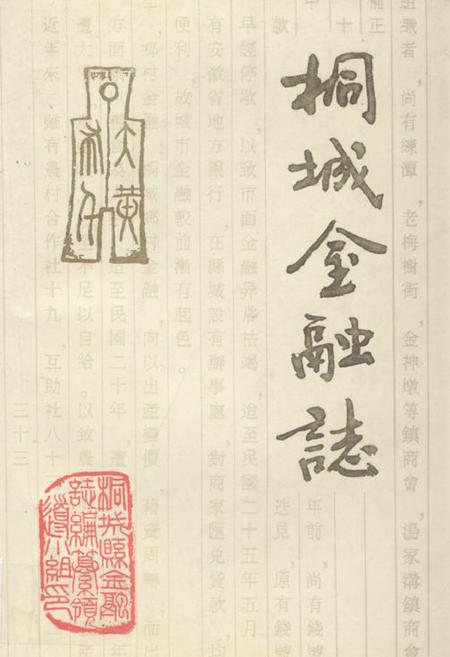 桐城金融誌
大黄
布千
桐城縣金融
誌編纂領
導小組印
者，尚有練潭，老梅樹街，金神墩等鎮商會，湯家溝鎮商會
正
十
款
年前，尚有錢號
迭見，原有錢號
早經停歇，以致市面金融异常枯竭，迨至民國二十五年五月
有安徽省地方銀行，在縣城設有辦事處，對商家匯兌貸款，均
便利，故城市金融較前漸有起色。
鄉村金融 桐城鄉村金融，向以出產 藉資周轉，而出
方面 造至民國二十年，遭 年
遭大 不足以自給。以致農 產
近年來，雖有農村合作社十九，互助社八十
三十三